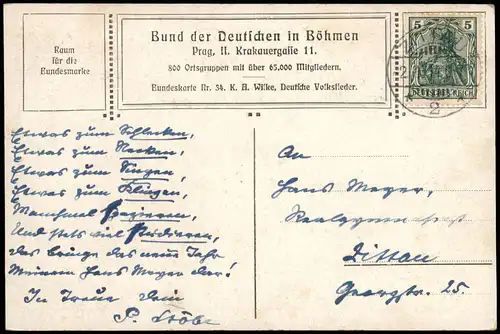 Raum
für die
Bundesmarke
Bund der Deutschen in Böhmen
Prag, II. Krakauergasse 11.
800 Ortsgruppen mit über 65.000 Mitgliedern.
Bundeskarte Nr. 34. K. A. Wilke, Deutsche Volkslieder.
5 5
DEUTSCHES REICH
2
Etwas zum Schlecken,
Etwas zum Necken,
Etwas zum Singen,
Etwas zum Klingen,
Manchmal spazieren,
Und stets viel studieren,
das bringe das neue Jahr
Meinem Hans Meyer dar!
In Treue Dein
P. Stöbe
An
Hans Meyer,
Realgymnasiast
Zittau
Georgstr. 25.